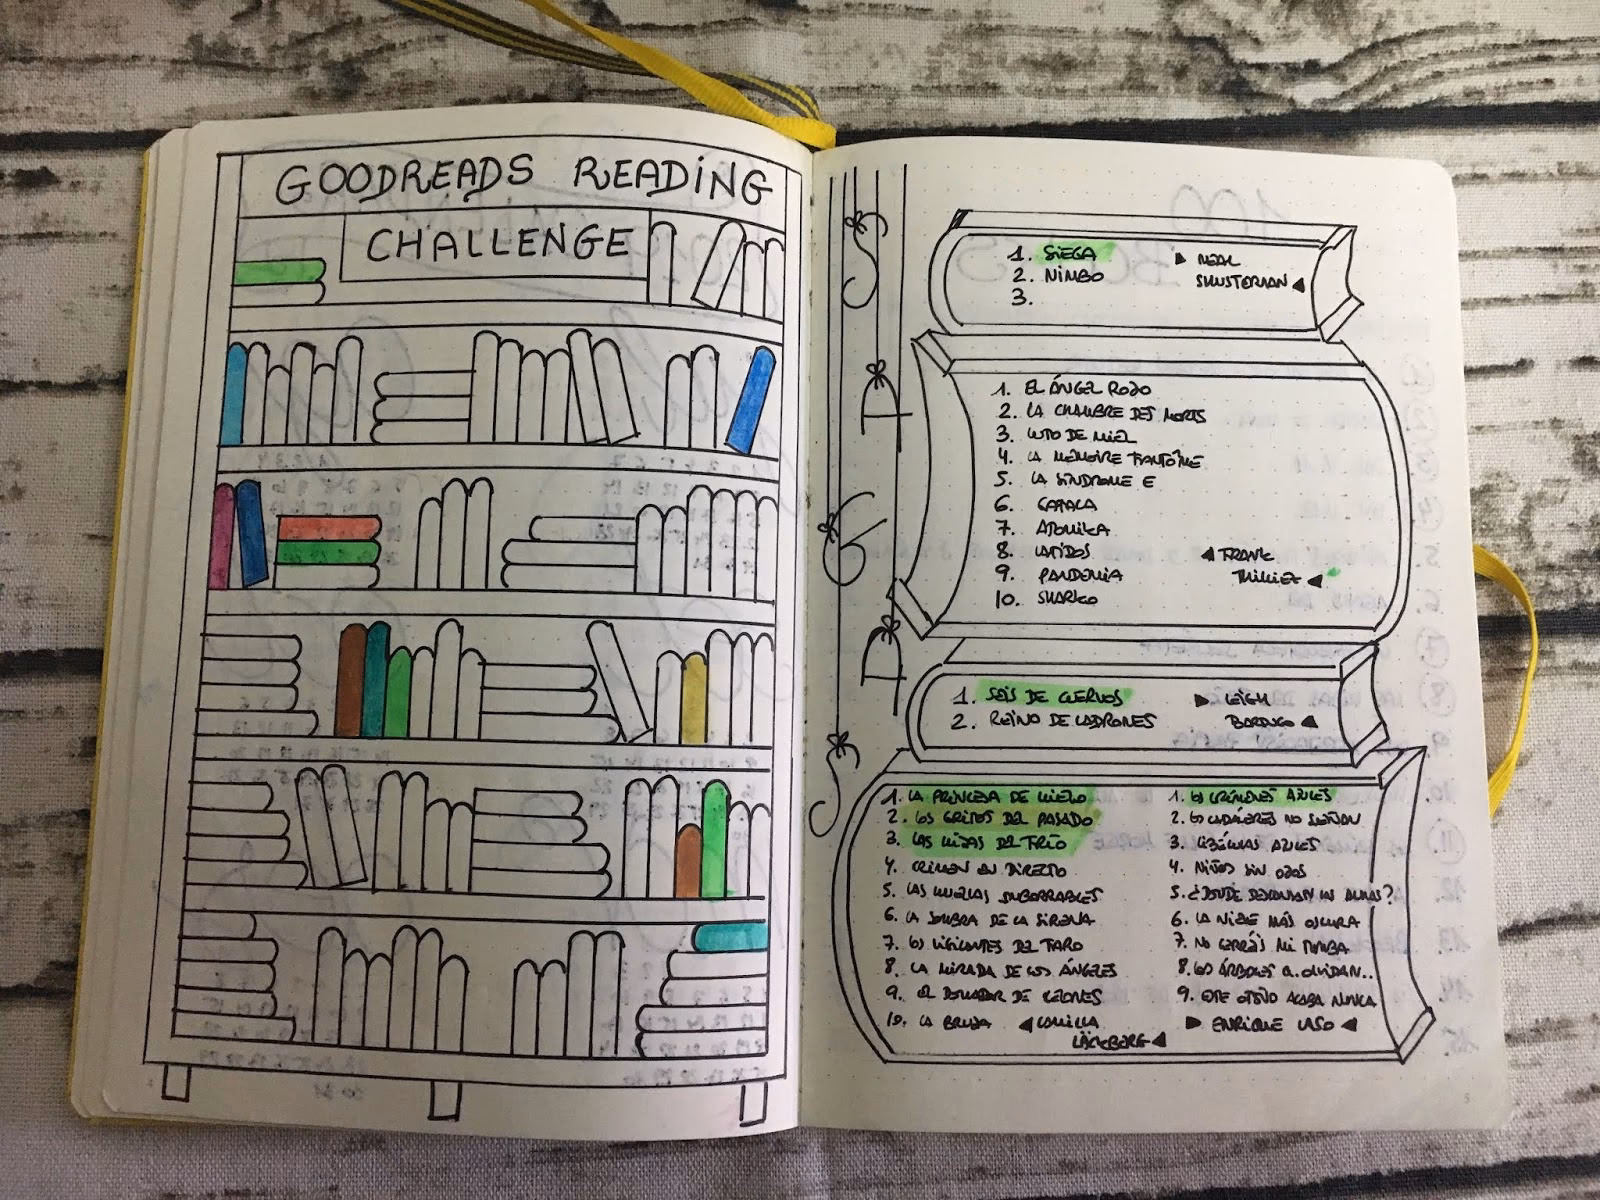 GOODREADS READING
CHALLENGE
SAGAS
1. SIEGA
2. NIMBO
3.
▶ NEAL
SHUSTERMAN ◀
1. EL ÁNGEL ROJO
2. LA CHAMBRE DES MORTS
3. LUTO DE MIEL
4. LA MÉMOIRE FANTÔME
5. LA SÍNDROME E
6. GATACA
7. ATOMKA
8. LATIDOS
9. PANDEMIA
10. SHARKO
◀ FRANK
THILLIEZ ◀
1. SEIS DE CUERVOS
2. REINO DE LADRONES
▶ LEIGH
BARDUGO ◀
1. LA PRINCESA DE HIELO
2. LOS GRITOS DEL PASADO
3. LAS HIJAS DEL FRÍO
4. CRIMEN EN DIRECTO
5. LAS HUELLAS IMBORRABLES
6. LA SOMBRA DE LA SIRENA
7. LOS VIGILANTES DEL FARO
8. LA MIRADA DE LOS ÁNGELES
9. EL DOMADOR DE LEONES
10. LA BRUJA
◀ CAMILLA
LÄCKBERG ◀
1. LOS CRÍMENES AZULES
2. LOS CADÁVERES NO SUEÑAN
3. LIBÉLULAS AZULES
4. NIÑOS SIN OJOS
5. ¿DÓNDE DESCANSAN LAS ALMAS?
6. LA NUBE MÁS OSCURA
7. NO CERRÉIS MI TUMBA
8. LOS ÁRBOLES Q. OLVIDAN..
9. ESTE OTOÑO ACABA NUNCA
▶ ENRIQUE LASO ◀